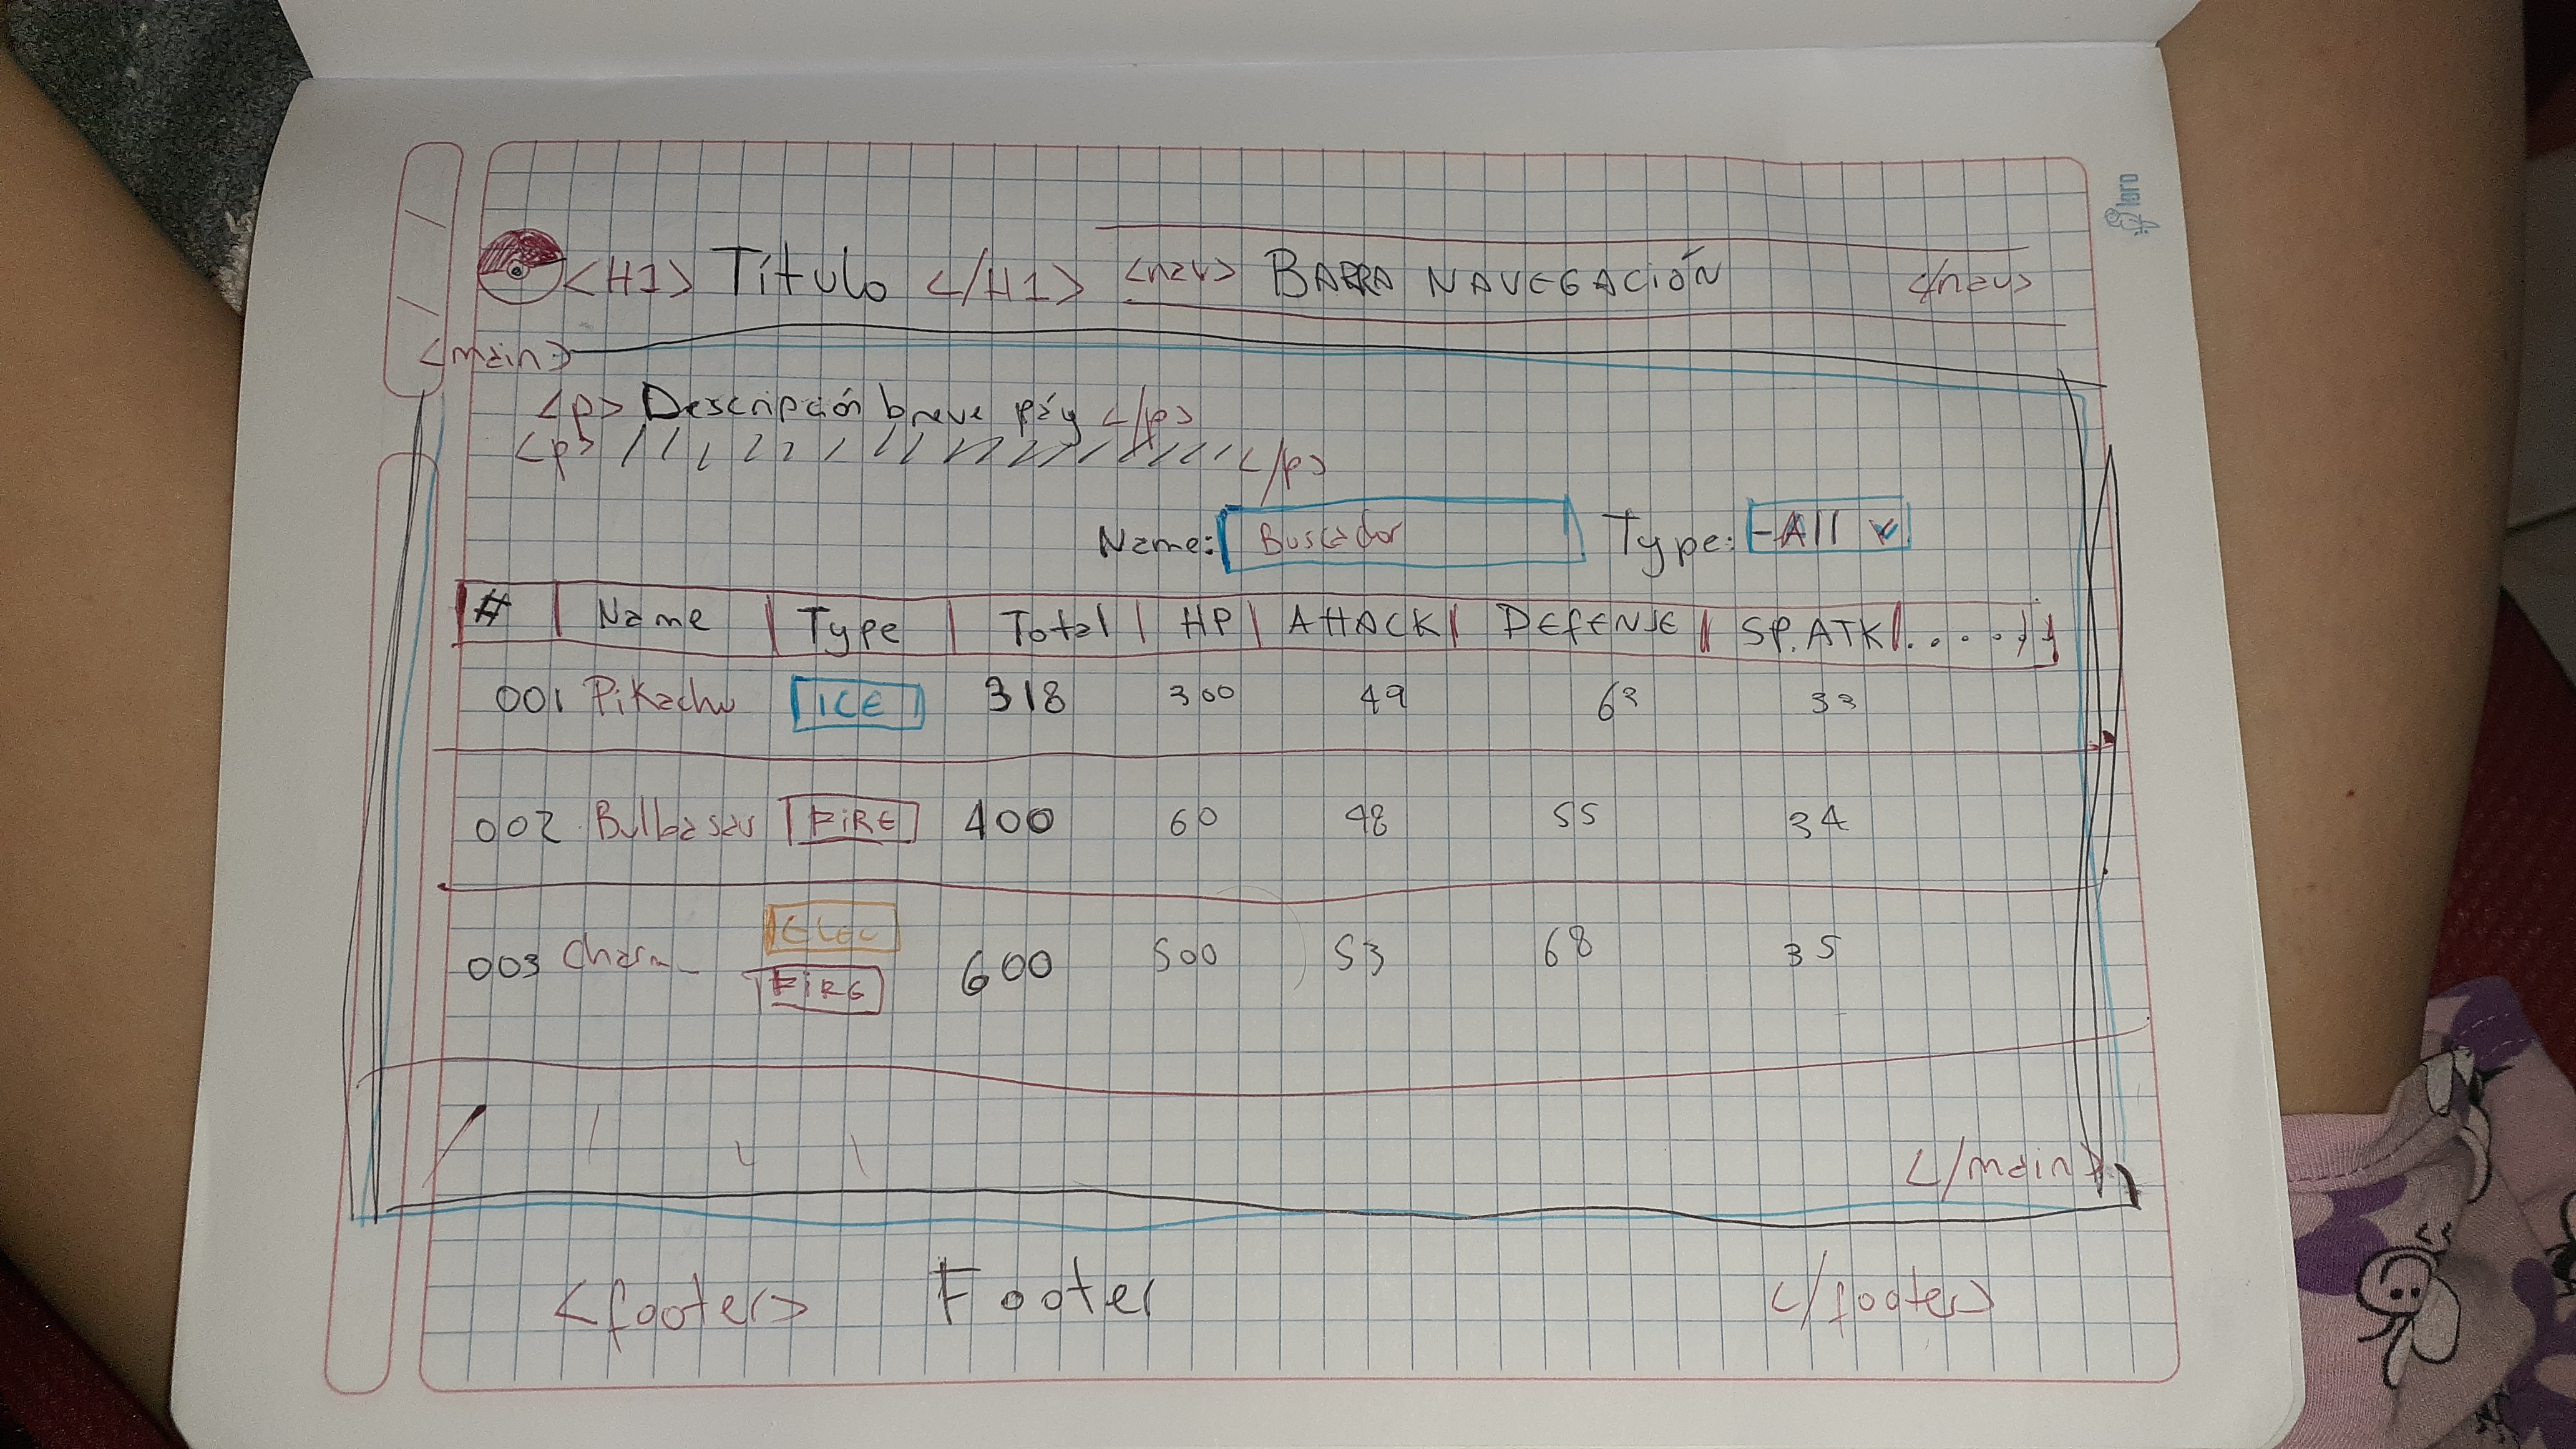 loro
<H1> Título </H1> <nav> BARRA NAVEGACIÓN </nav>
<main>
<p> Descripción breve pág </p>
<p> </p>
Name: Buscador Type: -All
# | Name | Type | Total | HP | ATTACK | DEFENSE | SP. ATK | . . . .
001 Pikachu ICE 318 300 49 63 33
002 Bulbasau FIRE 400 60 48 55 34
003 Charm_ ELEC FIRE 600 500 53 68 35
</main>
<footer> Footer </footer>